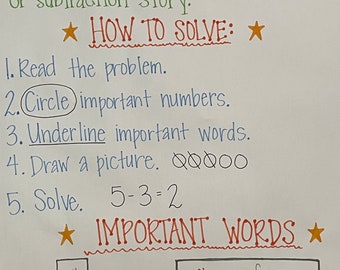 or subtraction story.
HOW TO SOLVE:
1. Read the problem.
2. Circle important numbers.
3. Underline important words.
4. Draw a picture.
5. Solve. 5-3=2
IMPORTANT WORDS